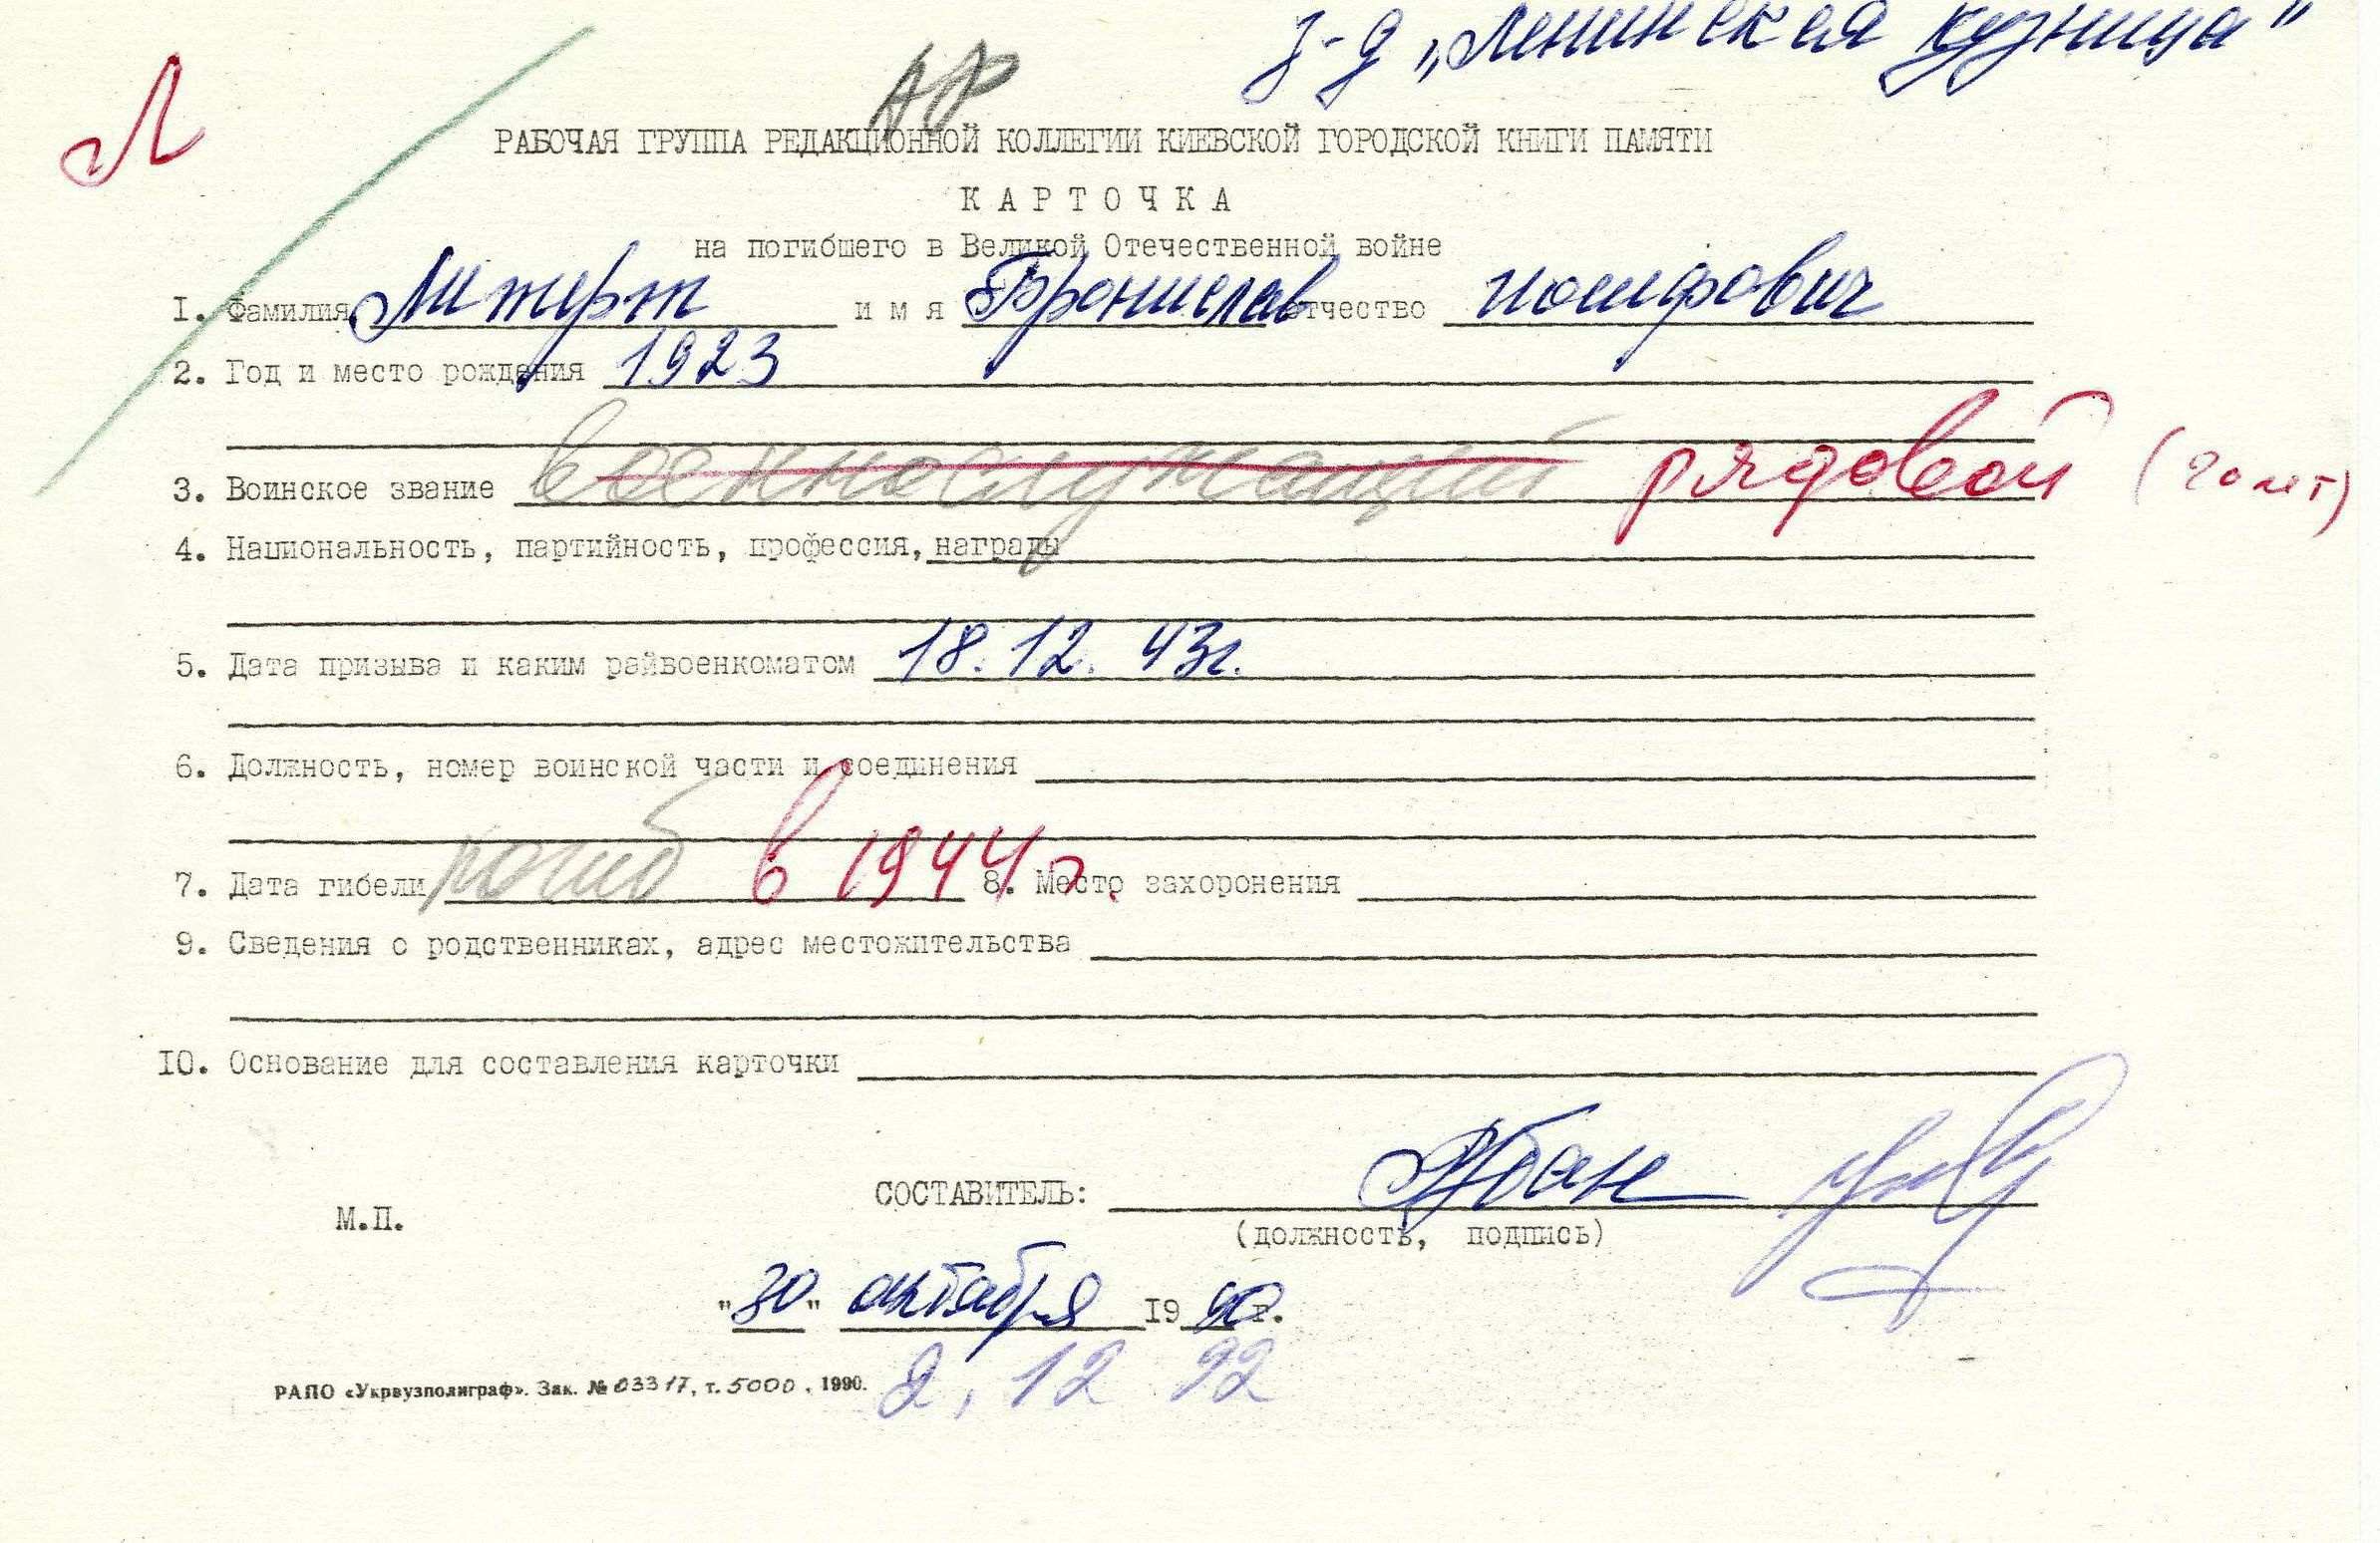 з-д „Ленинская кузница"
Л
АР
РАБОЧАЯ ГРУППА РЕДАКЦИОННОЙ КОЛЛЕГИИ КИЕВСКОЙ ГОРОДСКОЙ КНИГИ ПАМЯТИ
КАРТОЧКА
на погибшего в Великой Отечественной войне
1. Фамилия Литерт имя Бронислав отчество иосифович
2. Год и место рождения 1923
3. Воинское звание военнослужащий рядовой (20 лет)
4. Национальность, партийность, профессия, награды
5. Дата призыва и каким райвоенкоматом 18.12.43г.
6. Должность, номер воинской части и соединения
7. Дата гибели погиб в 1944 г. 8. Место захоронения
9. Сведения о родственниках, адрес местожительства
10. Основание для составления карточки
СОСТАВИТЕЛЬ:
М.П.
(должность, подпись)
"30" октября 1990 г.
РАПО «Укрвузполиграф». Зак. № 03317, т. 5000, 1990.
2, 12 92